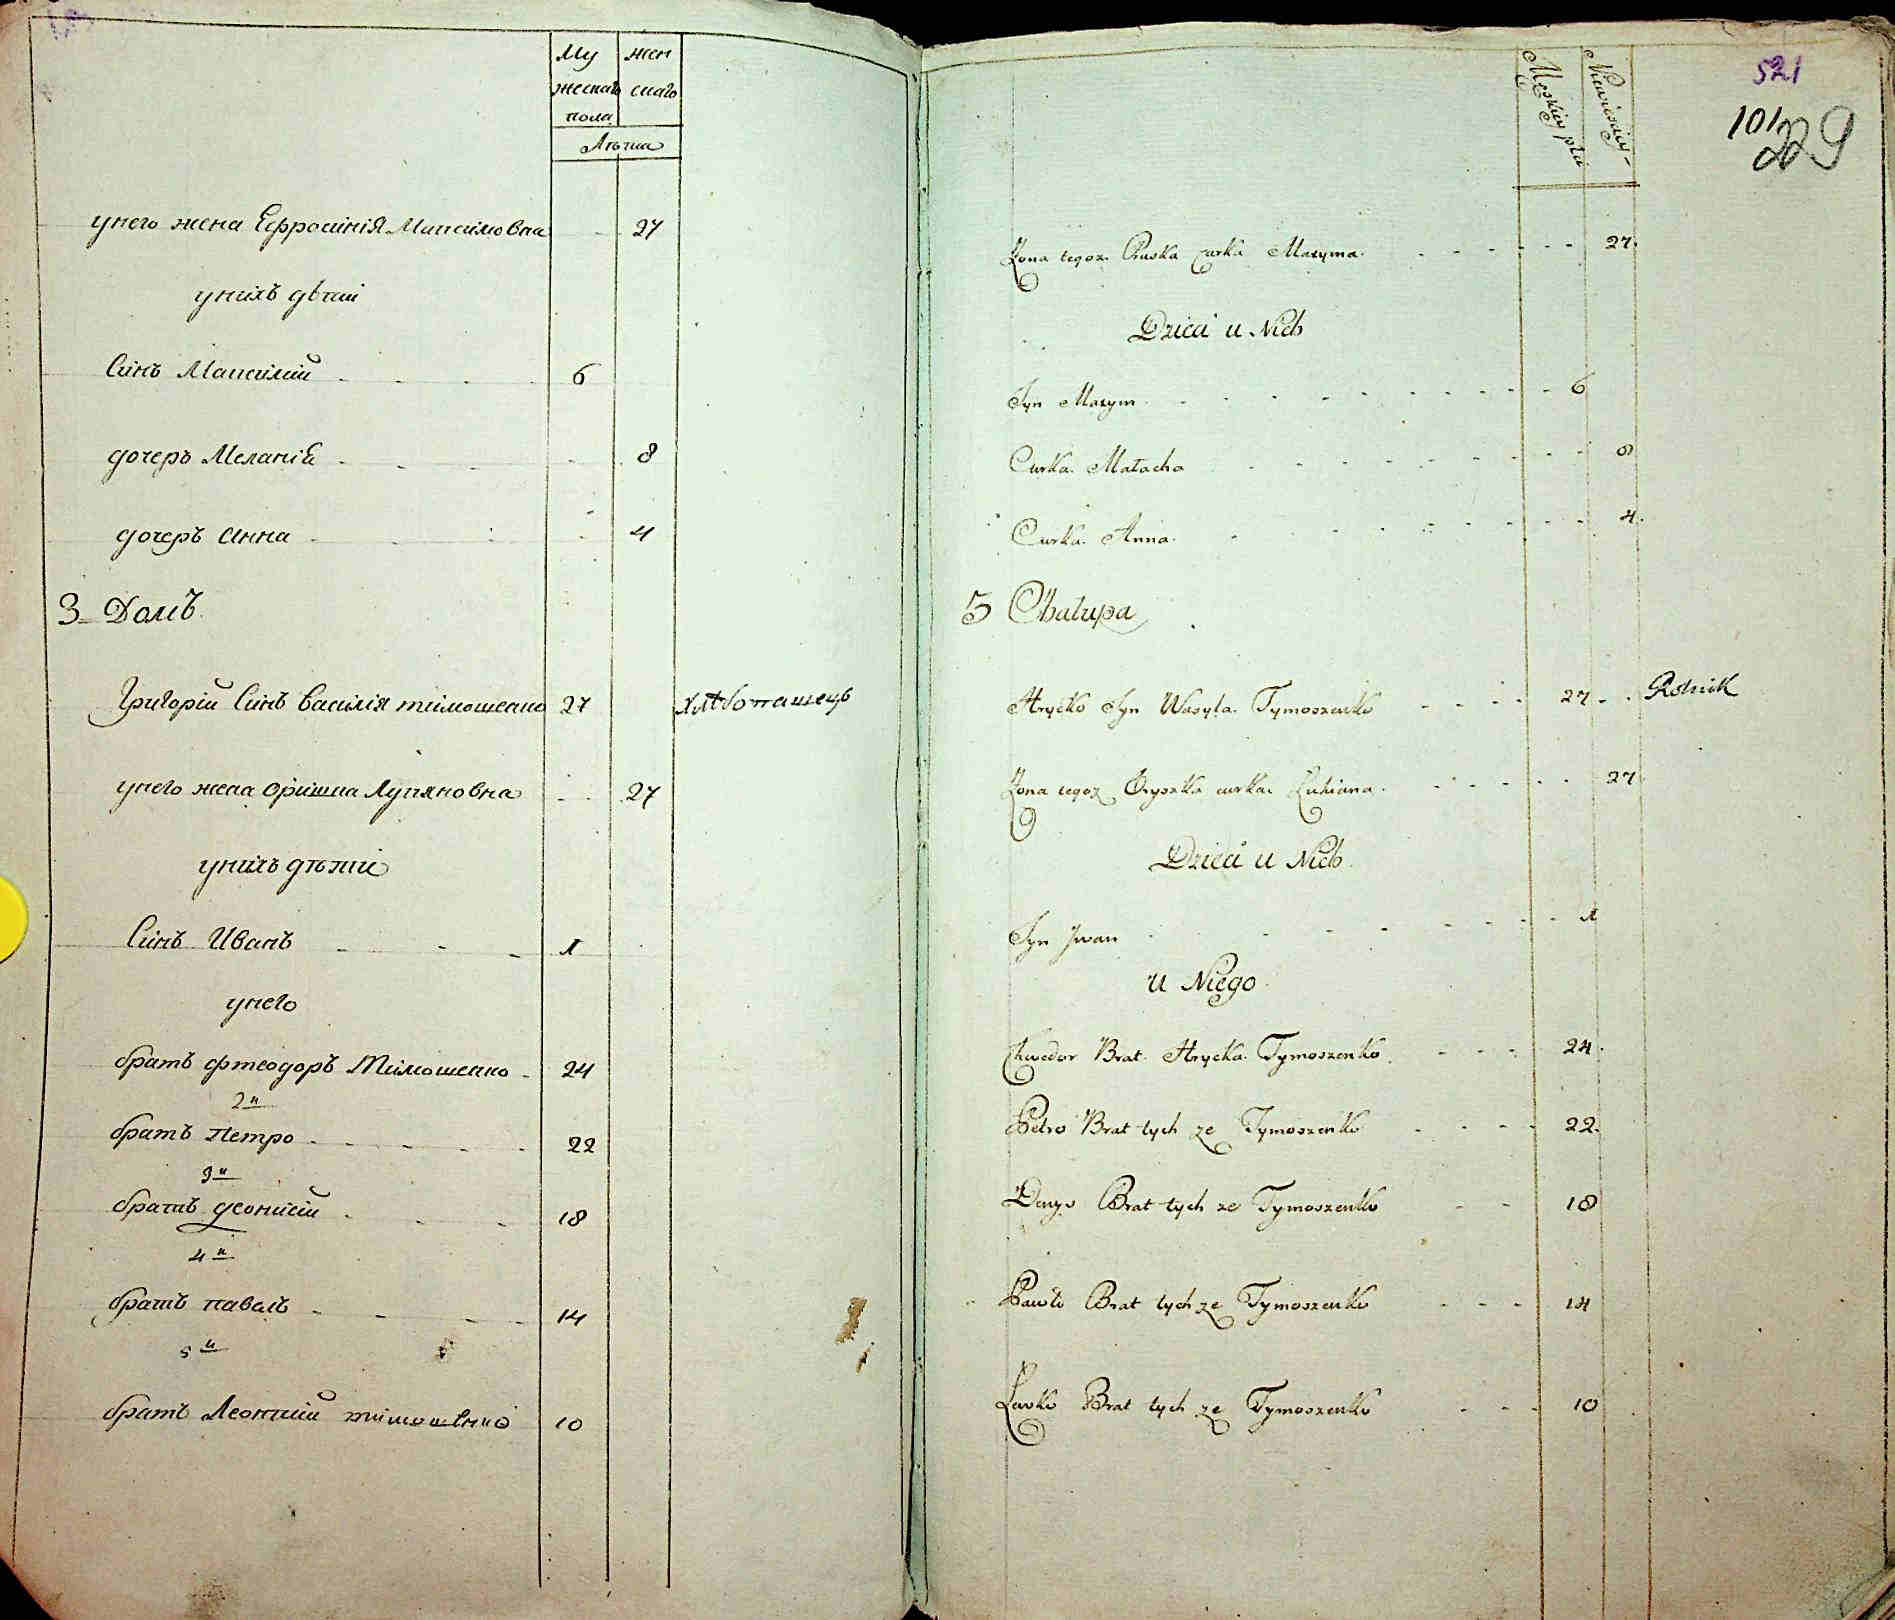 Му жен
жескаго скаго
пола
Лѣта
унего жена Ефросинія Максимовна 27
унихъ дѣти
Синъ Максимій 6
дочеръ Меланія 8
дочеръ Анна 4
3 Домъ
Григорій Синъ Василія тимошенко 27 хлѣбопашецъ
унего жена Оришка Лукяновна 27
унихъ дѣти
Синъ Иванъ 1
унего
братъ фтеодоръ Тимошенко 24
2й
братъ Петро 22
3й
братъ деонисій 18
4й
братъ павелъ 14
5й
братъ Леонтій тимошенко 10
521
101
229
Męskiey płci
Niewieściey
Żona tegoż Pruska curka Maxyma 27
Dzieci u Nich
Syn Maxym 6
Curka Małacha 8
Curka Anna 4
3 Chałupa
Hryćko Syn Wasyla Tymoszenko 27 Rolnik
Żona tegoż Oryszka curka Łukiana 27
Dzieci u Nich
Syn Jwan 1
u Niego
Chwedor Brat Hrycka Tymoszenko 24
Petro Brat tych ze Tymoszenko 22
Denys Brat tych ze Tymoszenko 18
Pawło Brat tych ze Tymoszenko 14
Lewko Brat tych ze Tymoszenko 10